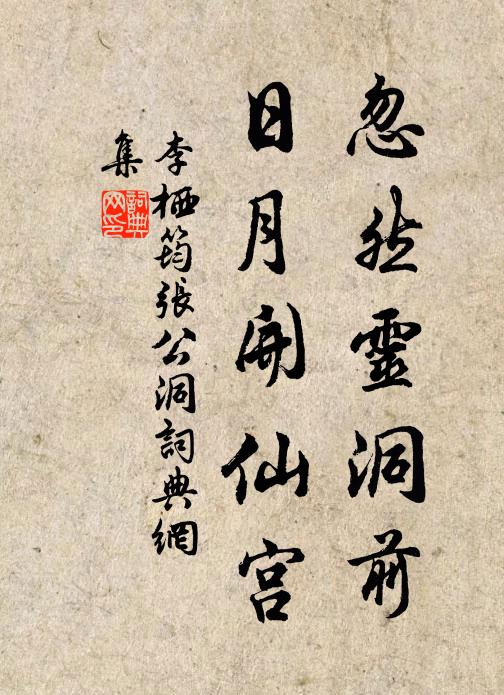 忽然靈洞前
日月開仙宮
李栖筠張公洞詞典網
集
詞典
网印